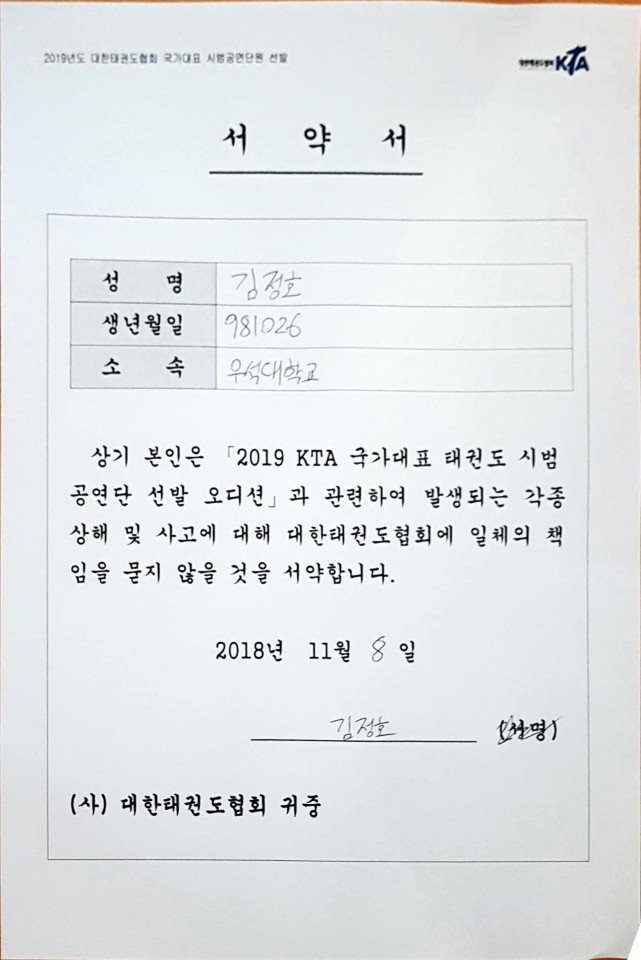 2019년도 대한태권도협회 국가대표 시범공연단원 선발
대한태권도협회 KTA
서 약 서
성 명 김정호
생년월일 981026
소 속 우석대학교
상기 본인은 「2019 KTA 국가대표 태권도 시범
공연단 선발 오디션」과 관련하여 발생되는 각종
상해 및 사고에 대해 대한태권도협회에 일체의 책
임을 묻지 않을 것을 서약합니다.
2018년 11월 8일
김정호 (서명)
(사) 대한태권도협회 귀중